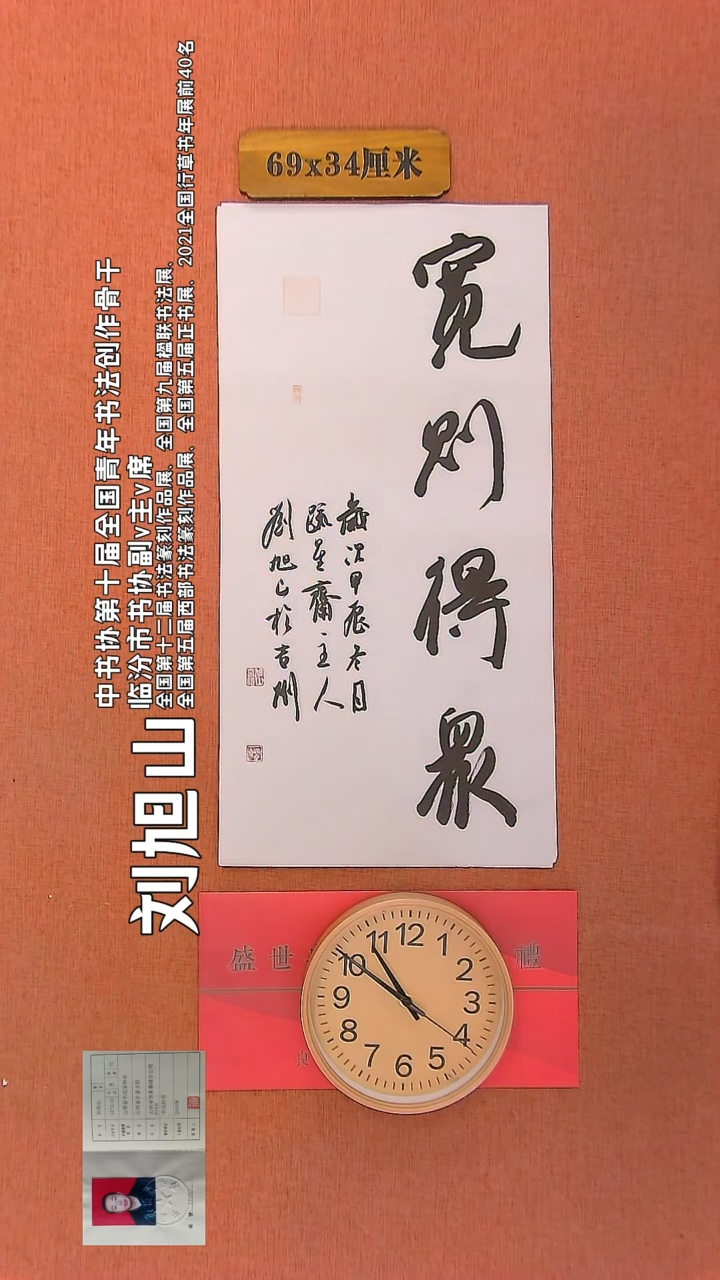 69x34厘米
寬則得眾
歲次甲辰冬月
疏星齋主人
劉旭山於吉州
中书协第十届全国青年书法创作骨干
临汾市书协副v主v席
全国第十二届书法篆刻作品展、全国第九届楹联书法展、
全国第五届西部书法篆刻作品展、全国第五届正书展、2021全国行草书年展前40名
刘旭山
盛世
禮
良
12
1
2
3
4
5
6
7
8
9
10
11